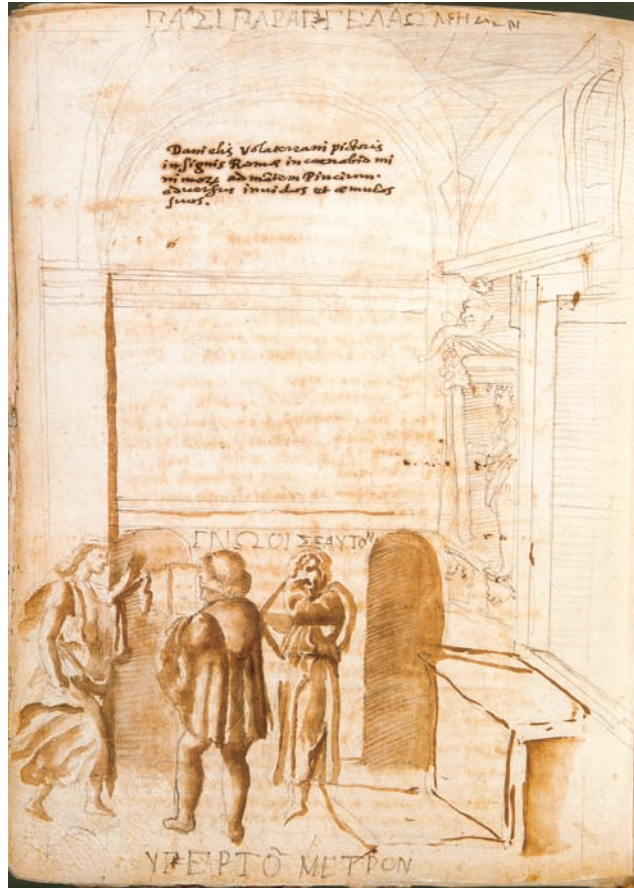 ΠΑΣΙ ΠΑΡΑΓΓΕΛΛΩ ΜΗΔΕΝ
Danielis Volaterrani pictoris
insignis Romæ in cœnobio mi
ni
ad mõtem Pincium
adversus invidos et æmulos
suos.
ΓΝΩΟΙ ΣΕΑΥΤΟΝ
ΥΠΕΡ ΤΟ ΜΕΤΡΟΝ